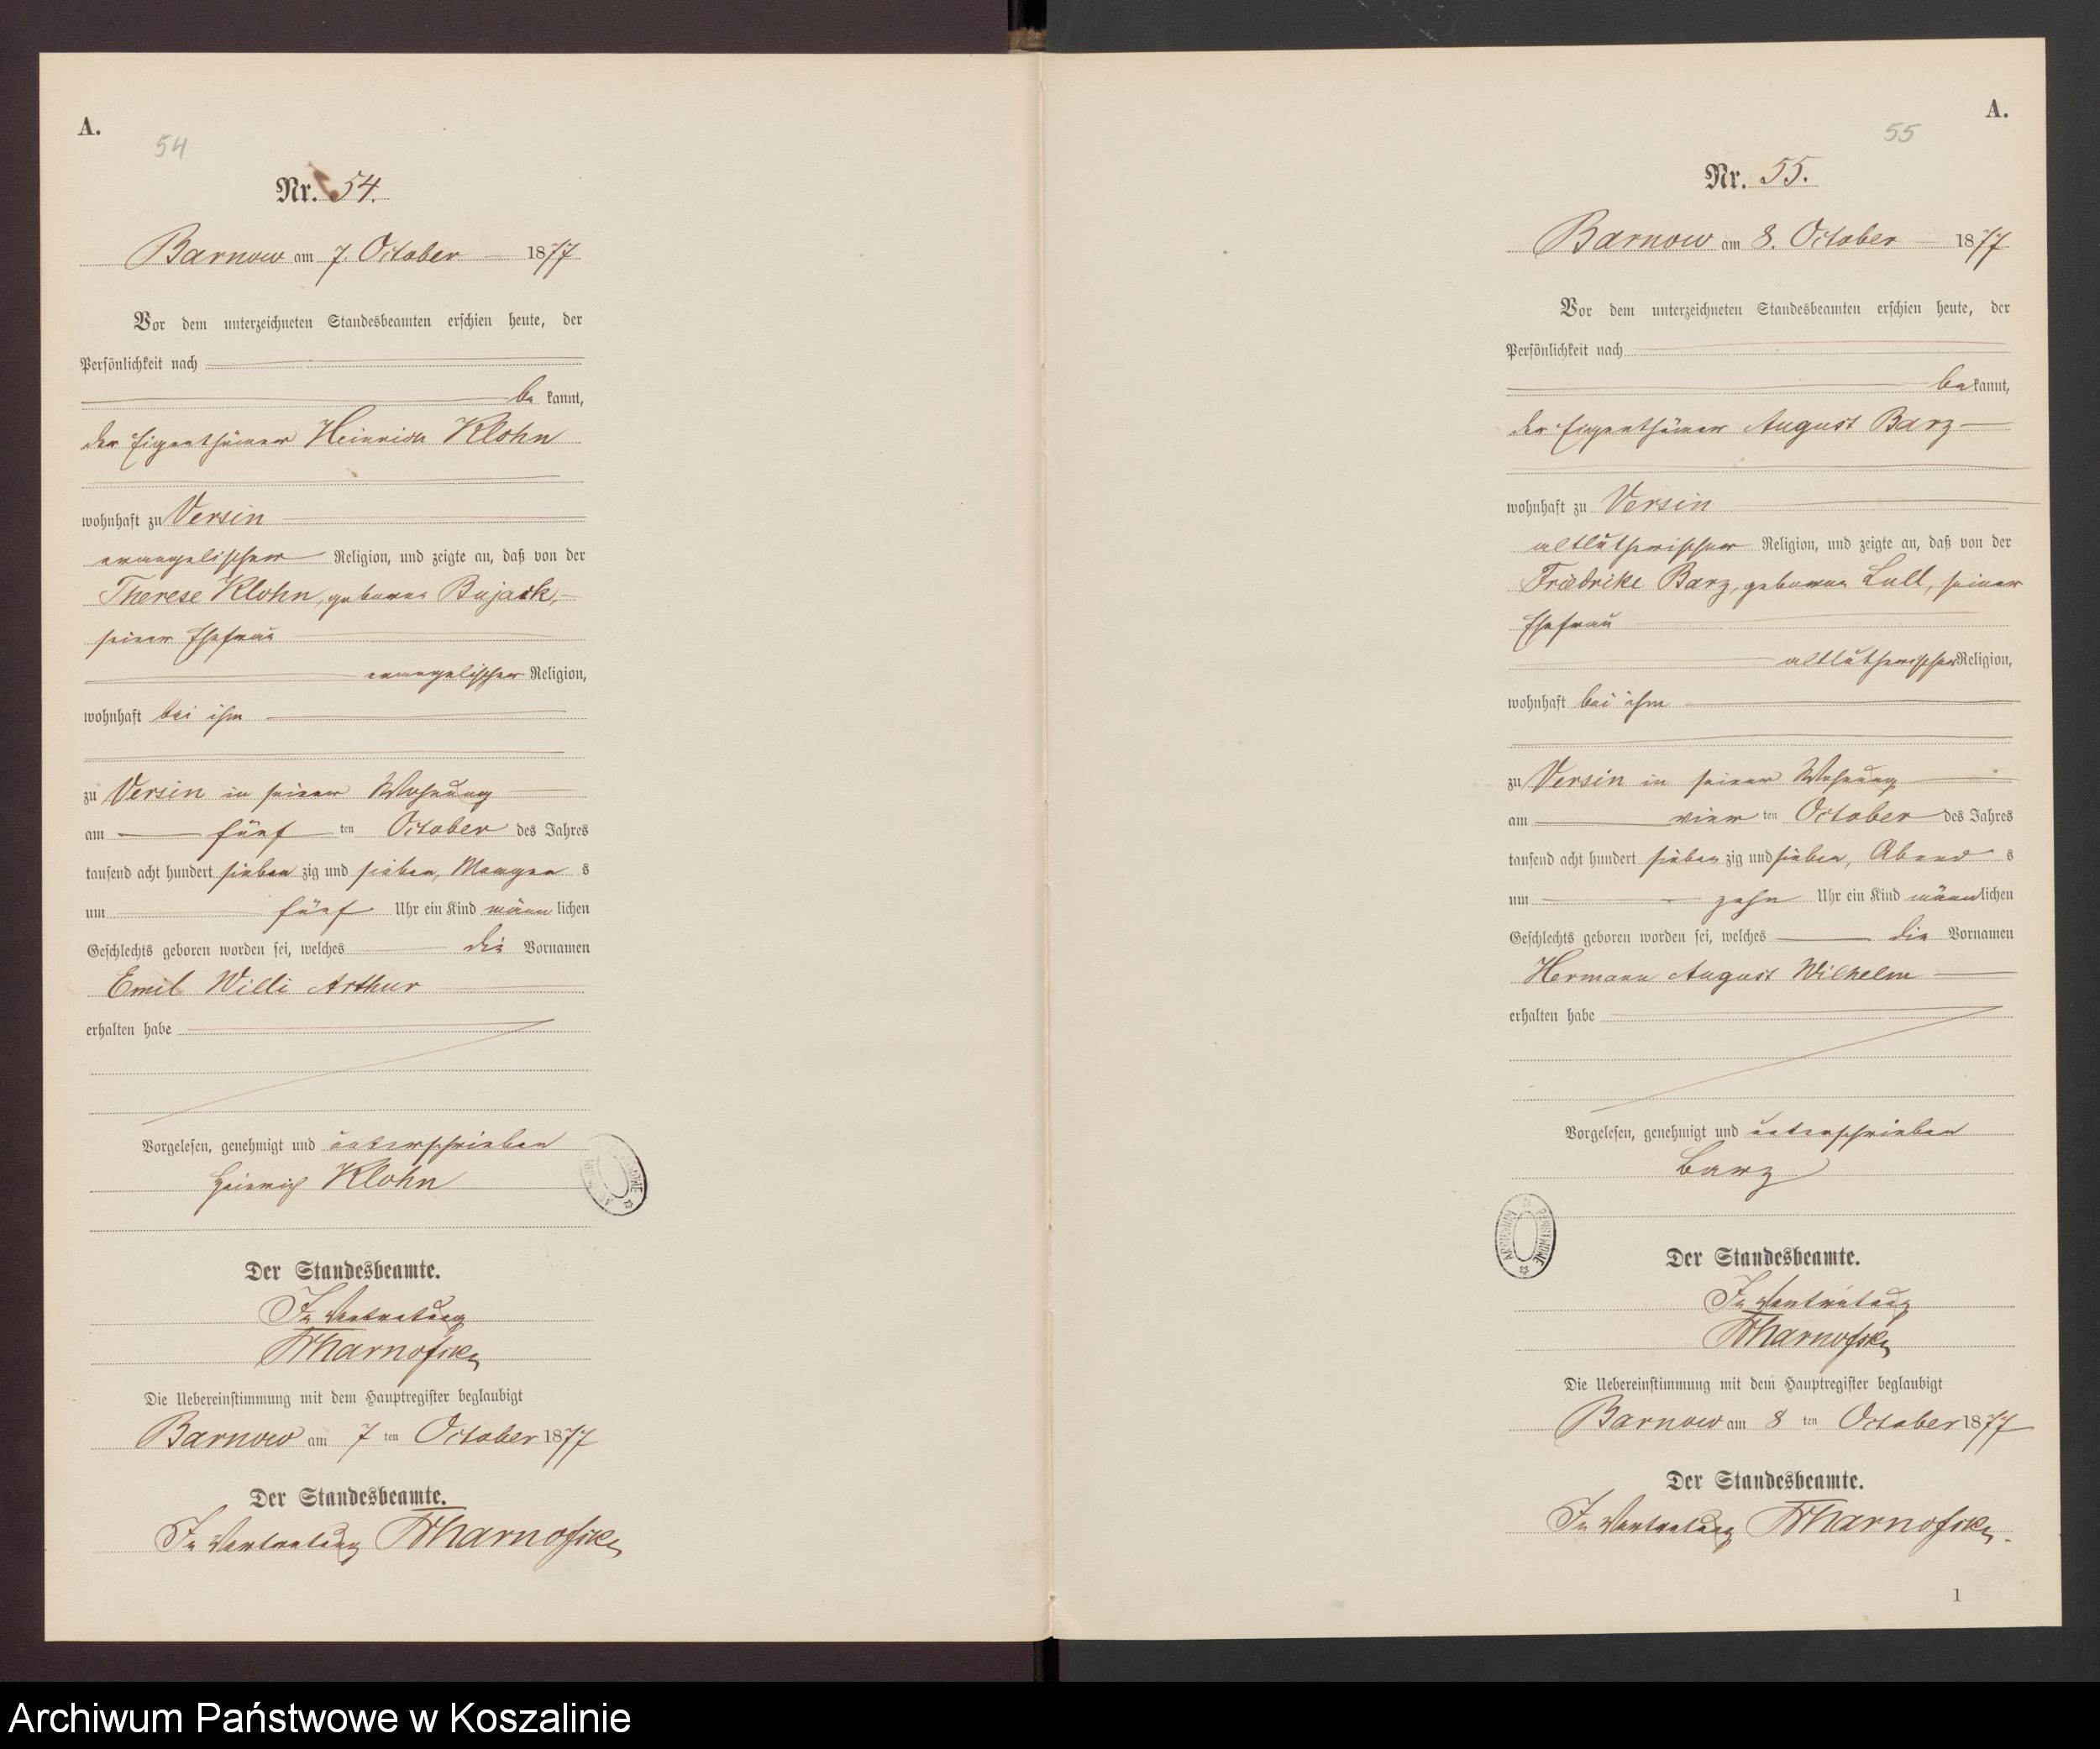 A.
54
Nr. 54.
Barnow am 7. October 1877
Vor dem unterzeichneten Standesbeamten erschien heute, der
Persönlichkeit nach
be kannt,
der Eigenthümer Heinrich Klohn
wohnhaft zu Versin
evangelischer Religion, und zeigte an, daß von der
Therese Klohn, geborne Bujack,
seiner Ehefrau
evangelischer Religion,
wohnhaft bei ihm
zu Versin in seiner Wohnung
am fünf ten October des Jahres
tausend acht hundert sieben zig und sieben, Morgen s
um fünf Uhr ein Kind männ lichen
Geschlechts geboren worden sei, welches die Vornamen
Emil Willi Arthur
erhalten habe
Vorgelesen, genehmigt und unterschrieben
Heinrich Klohn
Der Standesbeamte.
In Vertretung
Die Uebereinstimmung mit dem Hauptregister beglaubigt
Barnow am 7 ten October 1877
Der Standesbeamte.
In Vertretung
A.
55
Nr. 55.
Barnow am 8. October 1877
Vor dem unterzeichneten Standesbeamten erschien heute, der
Persönlichkeit nach
be kannt,
der Eigenthümer August Barz
wohnhaft zu Versin
altlutherischer Religion, und zeigte an, daß von der
Friedrike Barz, geborne Lull, seiner
Ehefrau
altlutherischer Religion,
wohnhaft bei ihm
zu Versin in seiner Wohnung
am vier ten October des Jahres
tausend acht hundert sieben zig und sieben, Abend s
um zehn Uhr ein Kind männ lichen
Geschlechts geboren worden sei, welches die Vornamen
Hermann August Wilhelm
erhalten habe
Vorgelesen, genehmigt und unterschrieben
Barz
Der Standesbeamte.
In Vertretung
Die Uebereinstimmung mit dem Hauptregister beglaubigt
Barnow am 8 ten October 1877
Der Standesbeamte.
In Vertretung
1
Archiwum Państwowe w Koszalinie